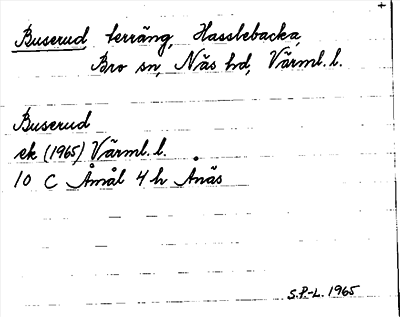 +
Buserud, terräng, Hasslebacka,
Bro sn, Näs hd, Värml. l.
Buserud
ek (1965) Värml. l.
10 C Åmål 4 h Ånäs
S.P.-L. 1965